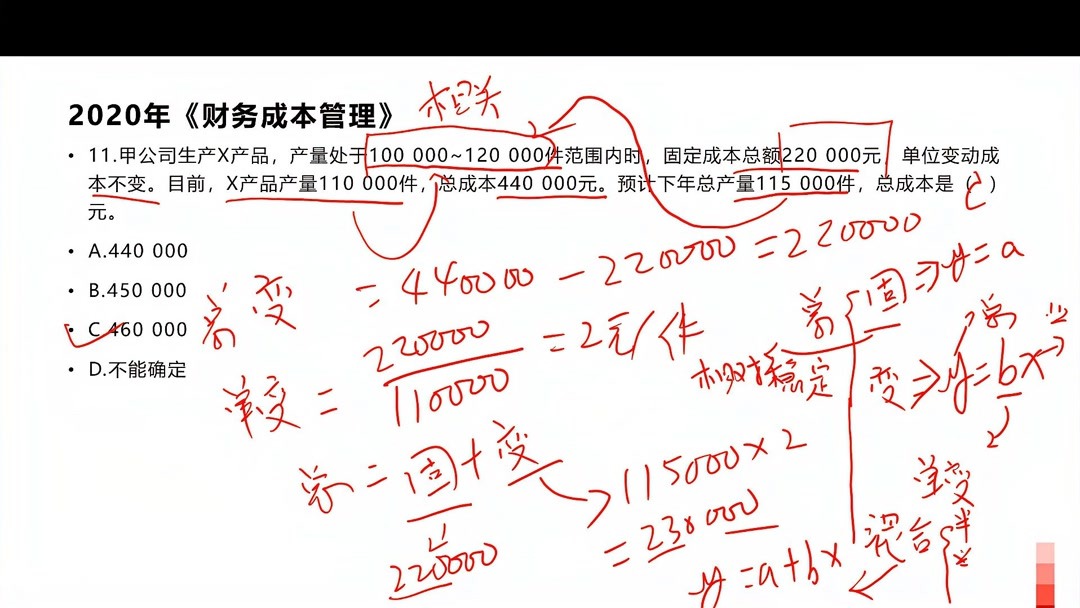 2020年《财务成本管理》
相关
• 11.甲公司生产X产品，产量处于100 000~120 000件范围内时，固定成本总额220 000元，单位变动成
本不变。目前，X产品产量110 000件，总成本440 000元。预计下年总产量115 000件，总成本是（C）
元。
• A.440 000
• B.450 000
• C.460 000
• D.不能确定
总变 = 440000 - 220000 = 220000
单变 = 220000/110000 = 2元/件
总 = 固 + 变
220000
115000×2
= 230000
总
固 ⇒ y=a
相对稳定
变 ⇒ y=bx
总
业
单变
混合
半
y=a+bx